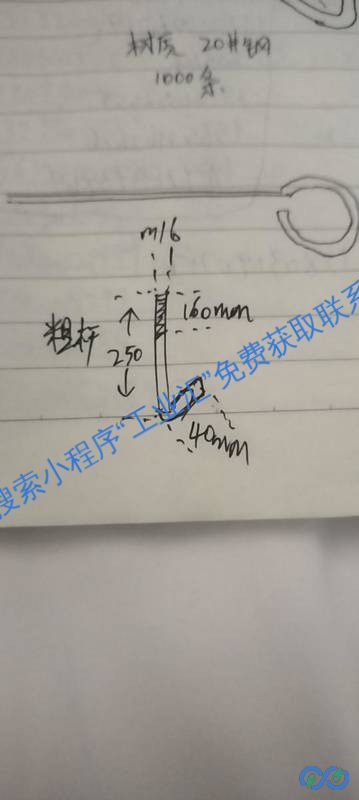 材质 20#钢
1000条
m16
160mm
粗杆
250
40mm
搜索小程序“工业记”免费获取联系